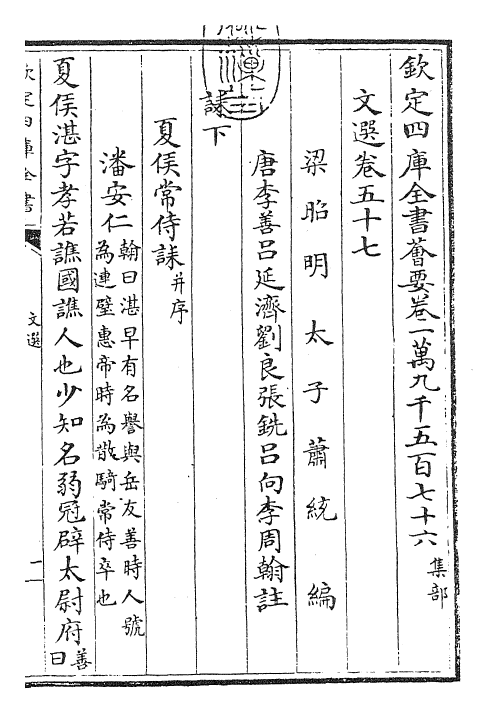 欽定四庫全書薈要卷一萬九千五百七十六
集部
文選卷五十七
梁昭明太子蕭統編
唐李善呂延濟劉良張銑呂向李周翰註
誄下
夏侯常侍誄
并序
潘安仁
翰曰湛早有名譽與岳友善時人號
為連璧惠帝時為散騎常侍卒也
夏侯湛字孝若譙國譙人也少知名弱冠辟太尉府
善曰
欽定四庫全書
文選
一